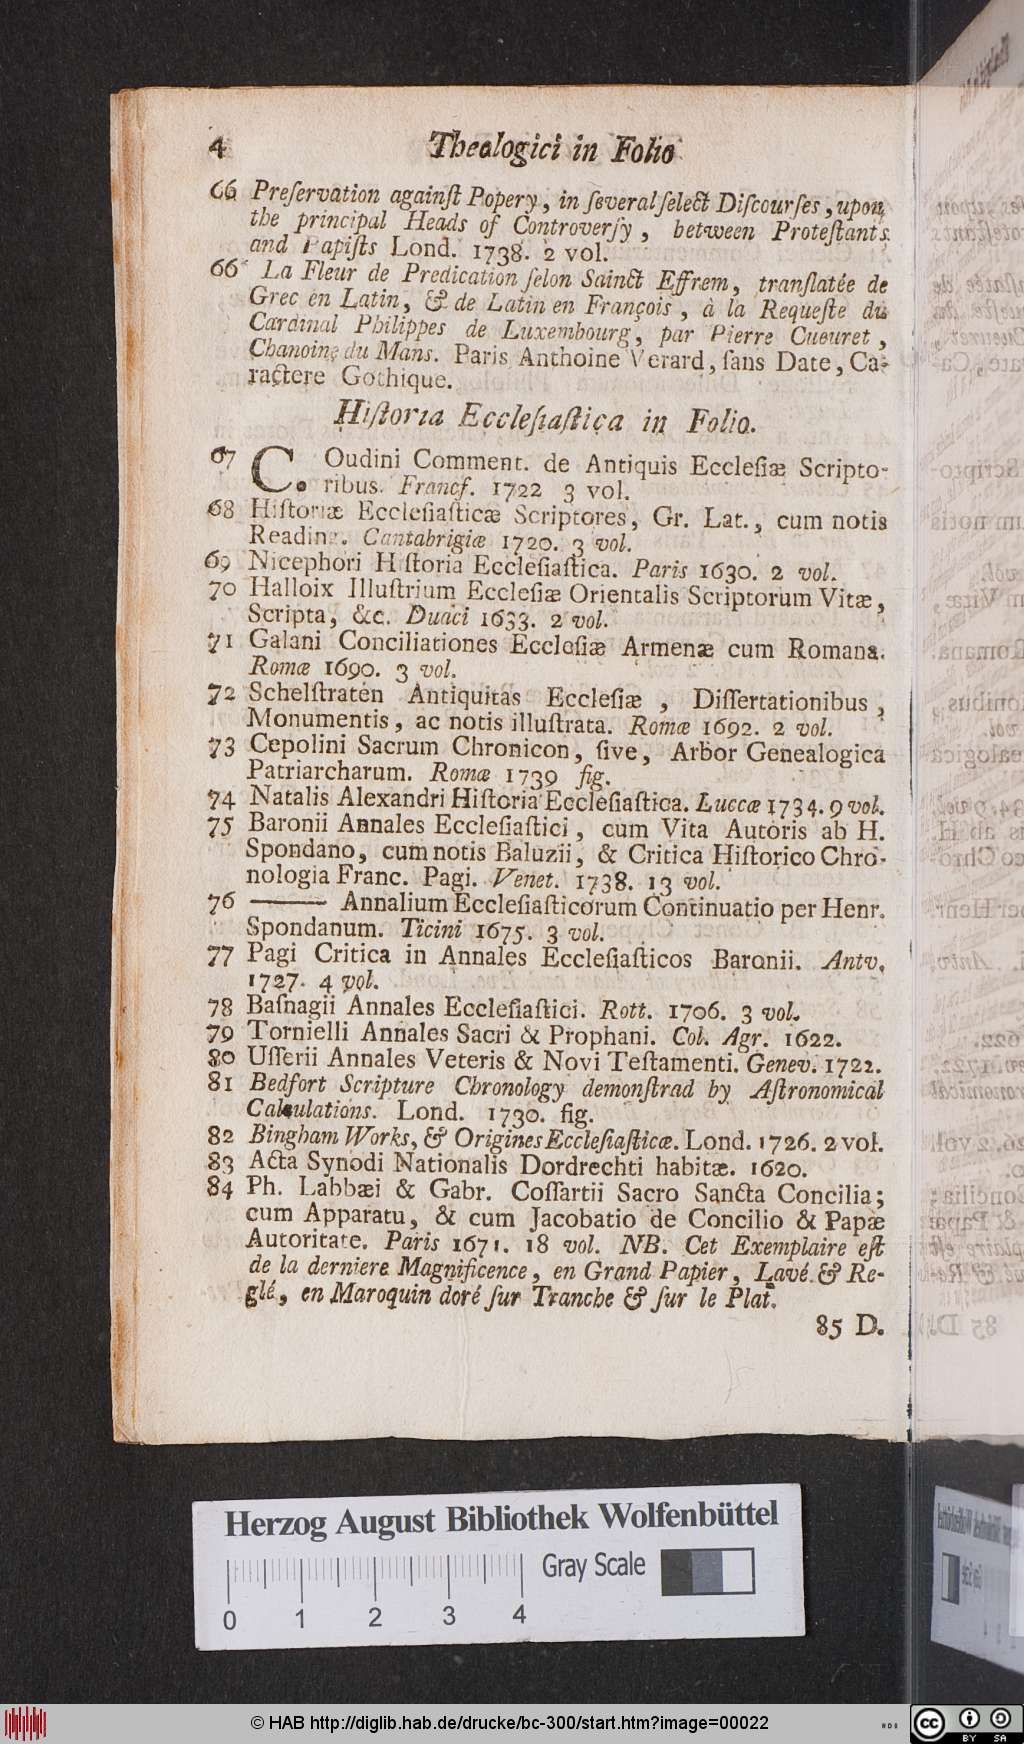 4 Theologici in Folio
66 Preſervation againſt Popery, in ſeveral ſelect Diſcourſes, upon
the principal Heads of Controverſy, between Proteſtants
and Papiſts Lond. 1738. 2 vol.
66* La Fleur de Predication ſelon Sainct Effrem, tranſlatée de
Grec en Latin, & de Latin en François, à la Requeſte du
Cardinal Philippes de Luxembourg, par Pierre Cueuret,
Chanoine du Mans. Paris Anthoine Verard, ſans Date, Ca-
ractere Gothique.
Hiſtoria Eccleſiaſtica in Folio.
67 C. Oudini Comment. de Antiquis Eccleſiæ Scripto-
ribus. Francf. 1722 3 vol.
68 Hiſtoriæ Eccleſiaſticæ Scriptores, Gr. Lat., cum notis
Reading. Cantabrigiæ 1720. 3 vol.
69 Nicephori Hiſtoria Eccleſiaſtica. Paris 1630. 2 vol.
70 Halloix Illuſtrium Eccleſiæ Orientalis Scriptorum Vitæ,
Scripta, &c. Duaci 1633. 2 vol.
71 Galani Conciliationes Eccleſiæ Armenæ cum Romana.
Romæ 1690. 3 vol.
72 Schelſtraten Antiquitas Eccleſiæ, Diſſertationibus,
Monumentis, ac notis illuſtrata. Romæ 1692. 2 vol.
73 Cepolini Sacrum Chronicon, ſive, Arbor Genealogica
Patriarcharum. Romæ 1739 fig.
74 Natalis Alexandri Hiſtoria Eccleſiaſtica. Luccæ 1734. 9 vol.
75 Baronii Annales Eccleſiaſtici, cum Vita Autoris ab H.
Spondano, cum notis Baluzii, & Critica Hiſtorico Chro-
nologia Franc. Pagi. Venet. 1738. 13 vol.
76 ——— Annalium Eccleſiaſticorum Continuatio per Henr.
Spondanum. Ticini 1675. 3 vol.
77 Pagi Critica in Annales Eccleſiaſticos Baronii. Antv.
1727. 4 vol.
78 Baſnagii Annales Eccleſiaſtici. Rott. 1706. 3 vol.
79 Tornielli Annales Sacri & Prophani. Col. Agr. 1622.
80 Uſſerii Annales Veteris & Novi Teſtamenti. Genev. 1722.
81 Bedfort Scripture Chronology demonſtrad by Aſtronomical
Calculations. Lond. 1730. fig.
82 Bingham Works, & Origines Eccleſiaſticæ. Lond. 1726. 2 vol.
83 Acta Synodi Nationalis Dordrechti habitæ. 1620.
84 Ph. Labbæi & Gabr. Coſſartii Sacro Sancta Concilia;
cum Apparatu, & cum Jacobatio de Concilio & Papæ
Autoritate. Paris 1671. 18 vol. NB. Cet Exemplaire eſt
de la derniere Magnificence, en Grand Papier, Lavé & Re-
glé, en Maroquin doré ſur Tranche & ſur le Plat.
85 D.
Herzog August Bibliothek Wolfenbüttel
Gray Scale
0 1 2 3 4
© HAB http://diglib.hab.de/drucke/bc-300/start.htm?image=00022
cc BY SA